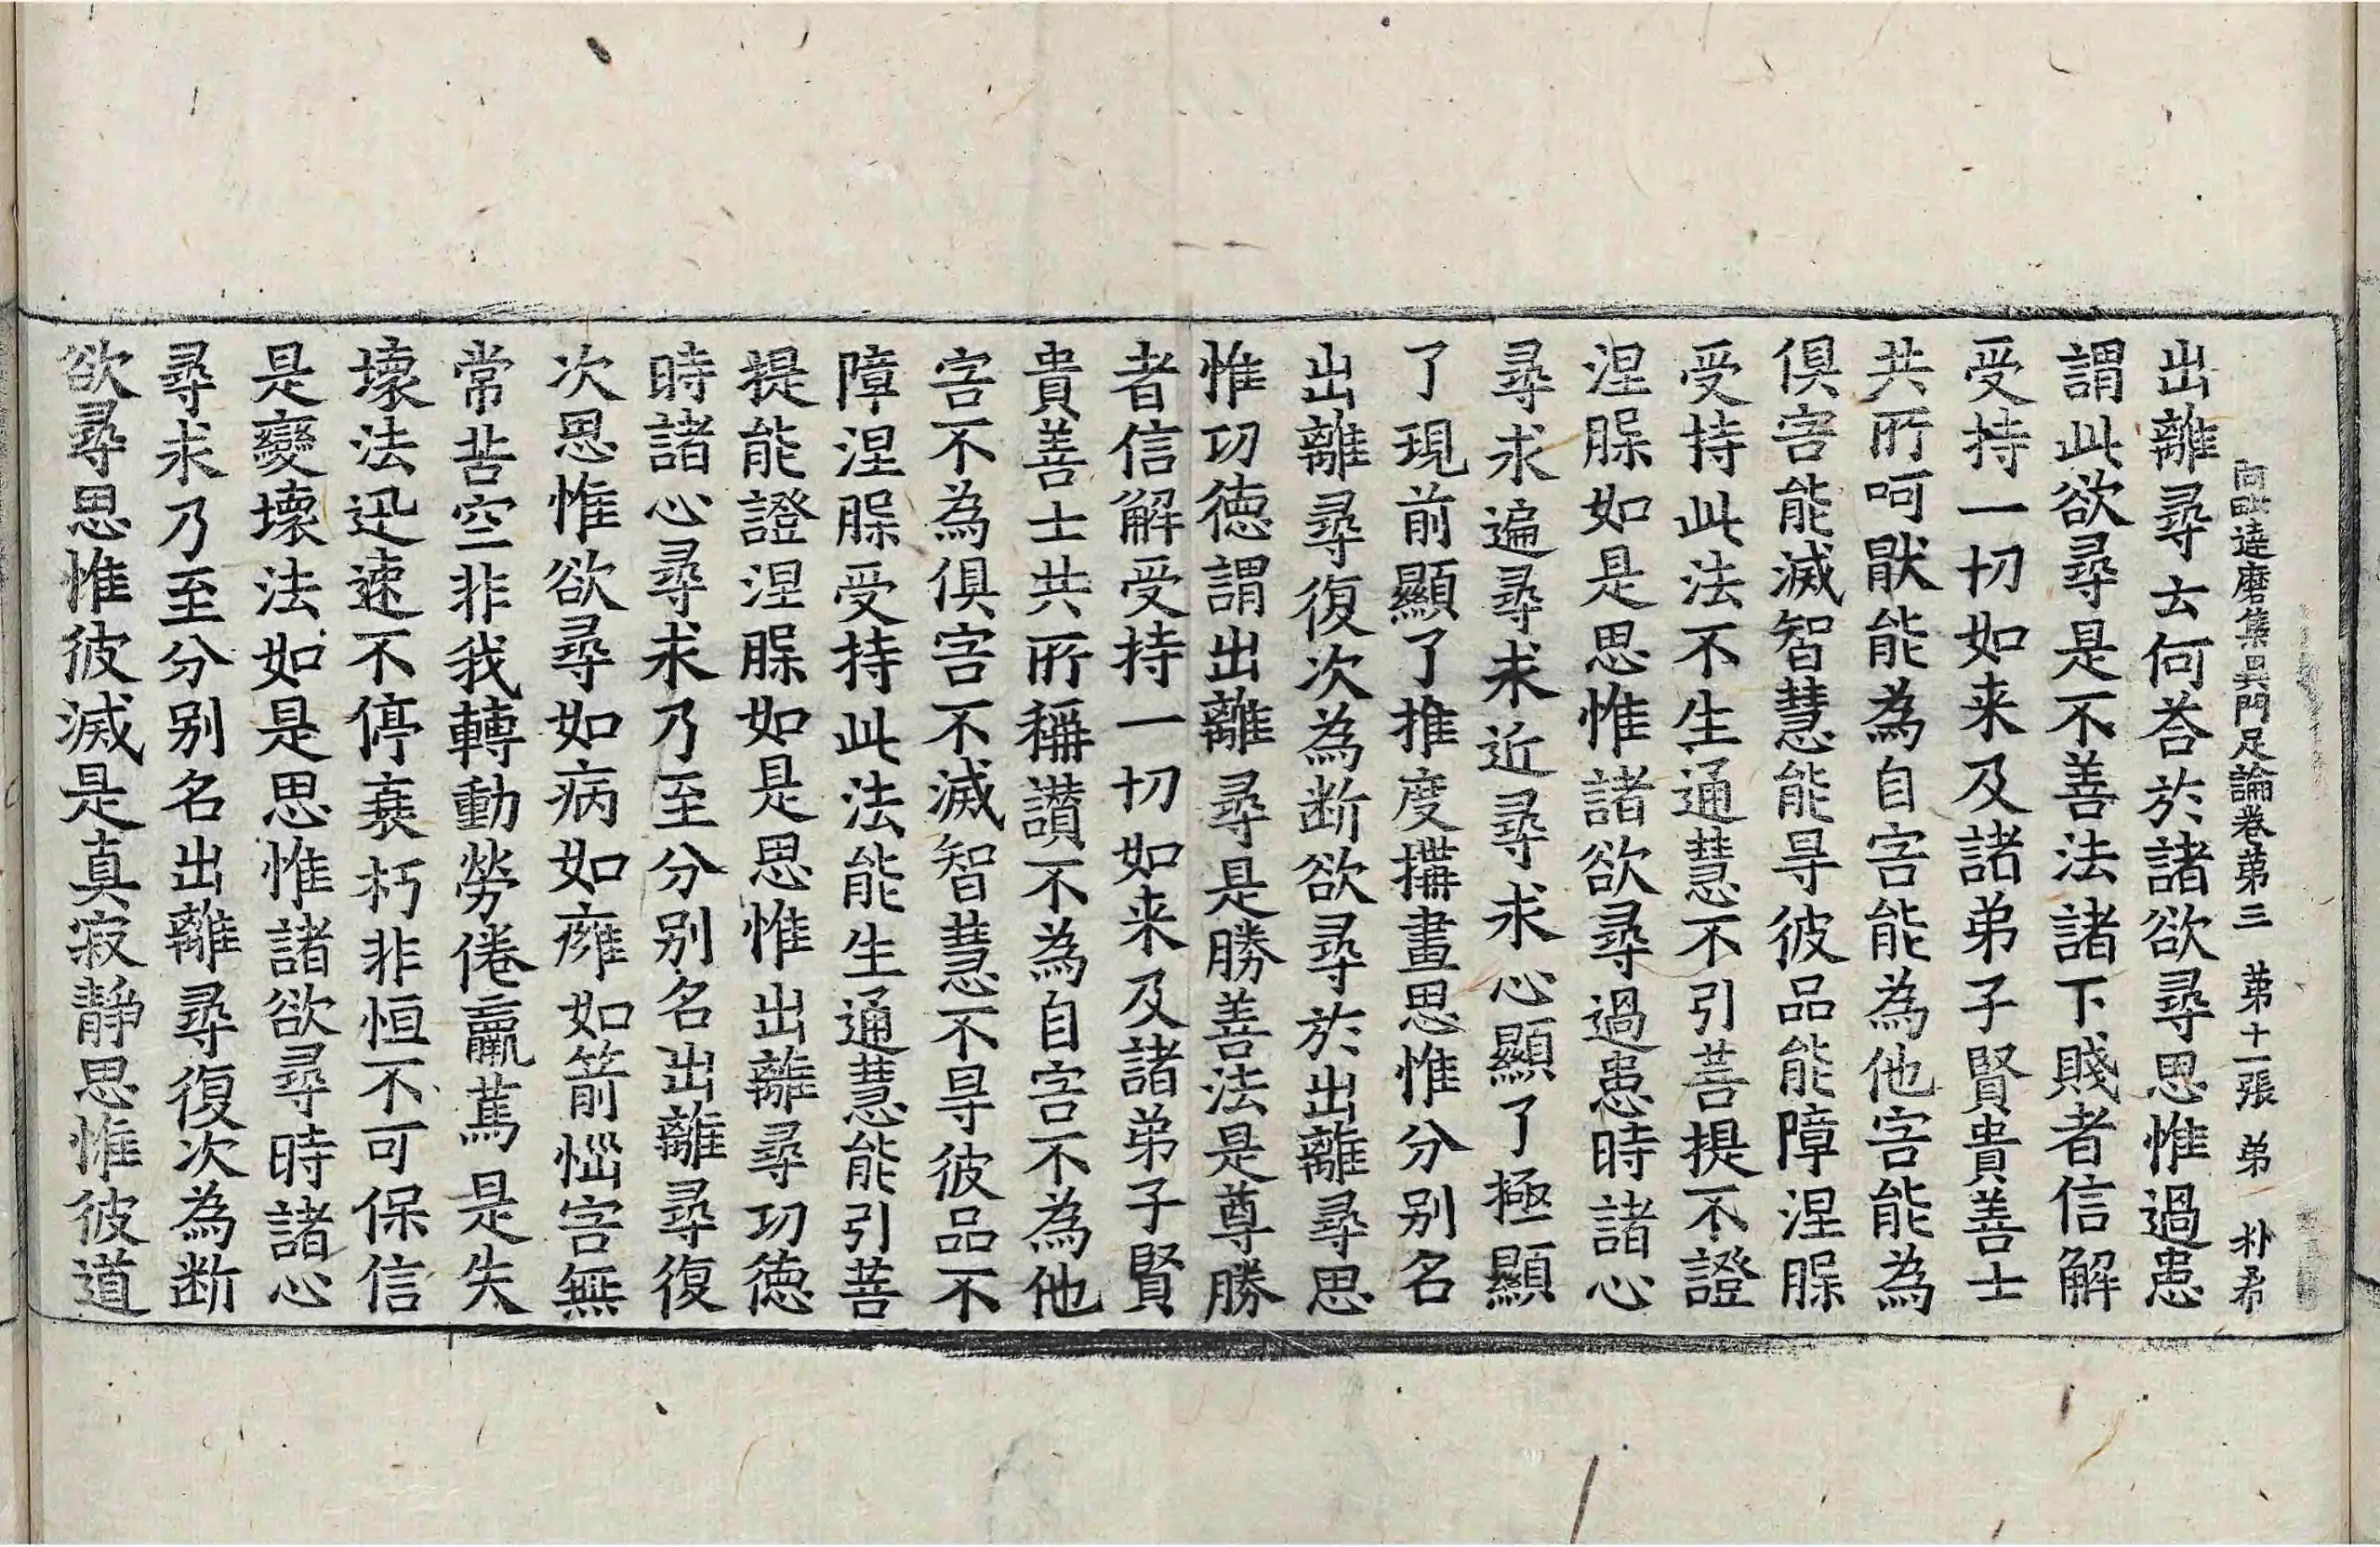 阿毗達磨集異門足論卷苐三 苐十一張 弟 朴希
出離尋去何荅於諸欲尋思惟過患
謂此欲尋是不善法諸下賤者信解
受持一切如来及諸弟子賢貴善士
共所呵猒能為自害能為他害能為
俱害能滅智慧能㝵彼品能障涅槃
受持此法不生通慧不引菩提不證
涅槃如是思惟諸欲尋過患時諸心
尋求遍尋求近尋求心顯了極顯
了現前顯了推度搆畫思惟分别名
出離尋復次為断欲尋於出離尋思
惟功德謂出離尋是勝善法是尊勝
者信解受持一切如来及諸弟子賢
貴善士共所稱讃不為自害不為他
害不為俱害不滅智慧不㝵彼品不
障涅槃受持此法能生通慧能引菩
提能證涅槃如是思惟出離尋功德
時諸心尋求乃至分别名出離尋復
次思惟欲尋如病如癰如箭惱害無
常苦空非我轉動勞倦羸篤是失
壞法迅速不停衰朽非恒不可保信
是變壞法如是思惟諸欲尋時諸心
尋求乃至分别名出離尋復次為断
欲尋思惟彼滅是真寂靜思惟彼道